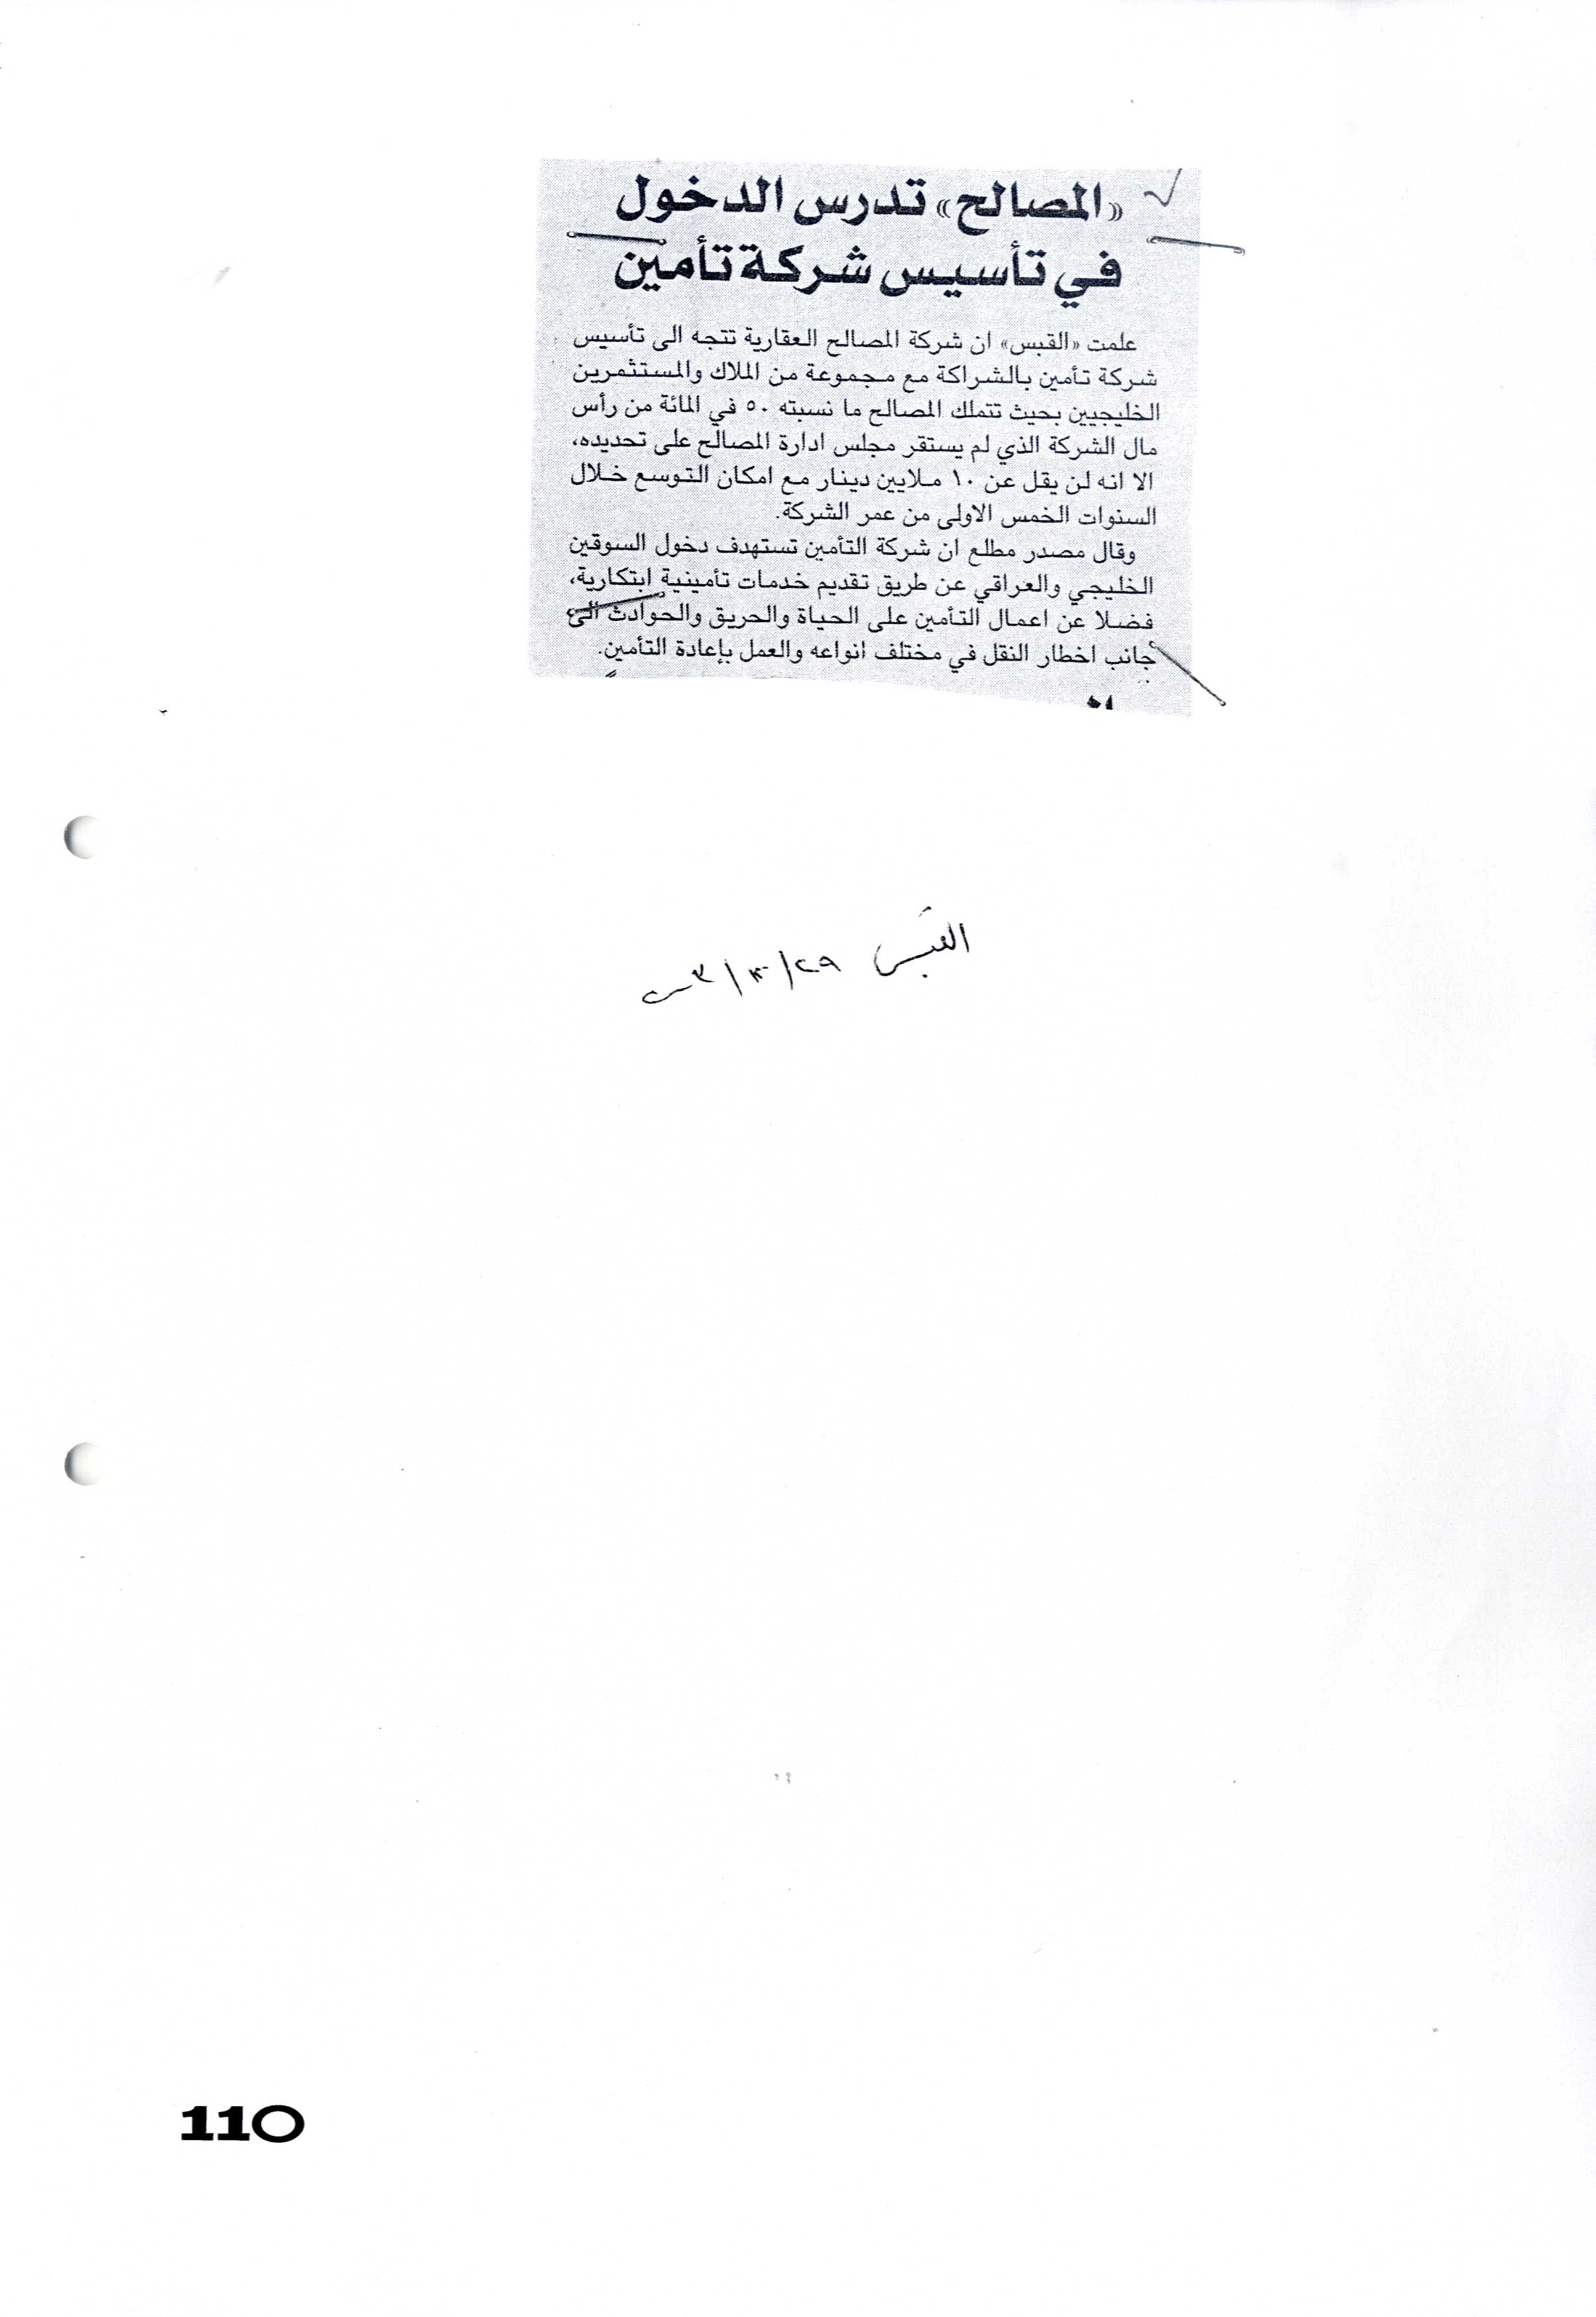 «المصالح» تدرس الدخول
في تأسيس شركة تأمين
علمت «القبس» ان شركة المصالح العقارية تتجه الى تأسيس
شركة تأمين بالشراكة مع مجموعة من الملاك والمستثمرين
الخليجيين بحيث تتملك المصالح ما نسبته ٥٠ في المائة من رأس
مال الشركة الذي لم يستقر مجلس ادارة المصالح على تحديده،
الا انه لن يقل عن ١٠ ملايين دينار مع امكان التوسع خلال
السنوات الخمس الاولى من عمر الشركة.
وقال مصدر مطلع ان شركة التأمين تستهدف دخول السوقين
الخليجي والعراقي عن طريق تقديم خدمات تأمينية ابتكارية،
فضلا عن اعمال التأمين على الحياة والحريق والحوادث الى
جانب اخطار النقل في مختلف انواعه والعمل بإعادة التأمين.
القبس
110